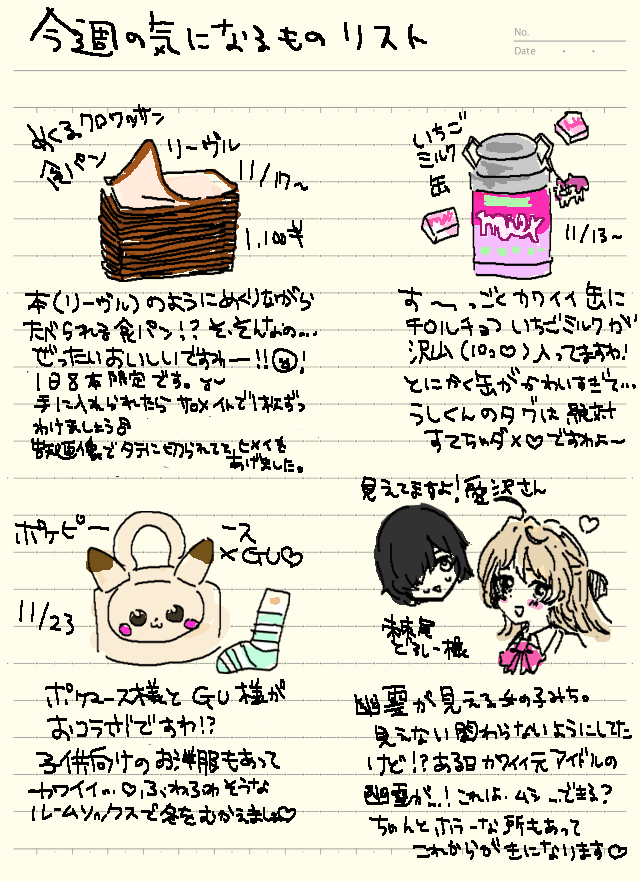 今週の気になるもの リスト
No.
Date
めくるクロワッサン
食パン
リーヴル
11/17~
1,100¥
本(リーヴル)のようにめくりながら
たべられる食パン!?そ、そんなの…
ぜったいおいしいですわー!!
1日8本限定です。
手に入れられたら サロメイトで1枚ずつ
わけましょう
画像でタテに切られてて、ヒメイを
あげました。
いちご
ミルク
缶
milk
11/13~
す〜っごくカワイイ缶に
チロルチョコいちごミルクが
沢山(10コ♡)入ってますわ!
とにかく缶がかわいすぎて…
うしくんのタグは絶対
すてちゃダメ♡ですわよ~
ポケピース
×GU♡
11/23
ポケピース様とGU様が
おコラボですわ!?
子供向けのお洋服もあって
カワイイ…♡ふわふわそうな
ルームソックスで冬をむかえましょ♡
見えてますよ!愛沢さん
どろしー様
幽霊が見える女の子みち。
見えない関わらないようにしてた
けど!?ある日カワイイ元アイドルの
幽霊が…!これは、ムシ…できる?
ちゃんとホラーな所もあって
これからが気になります♡